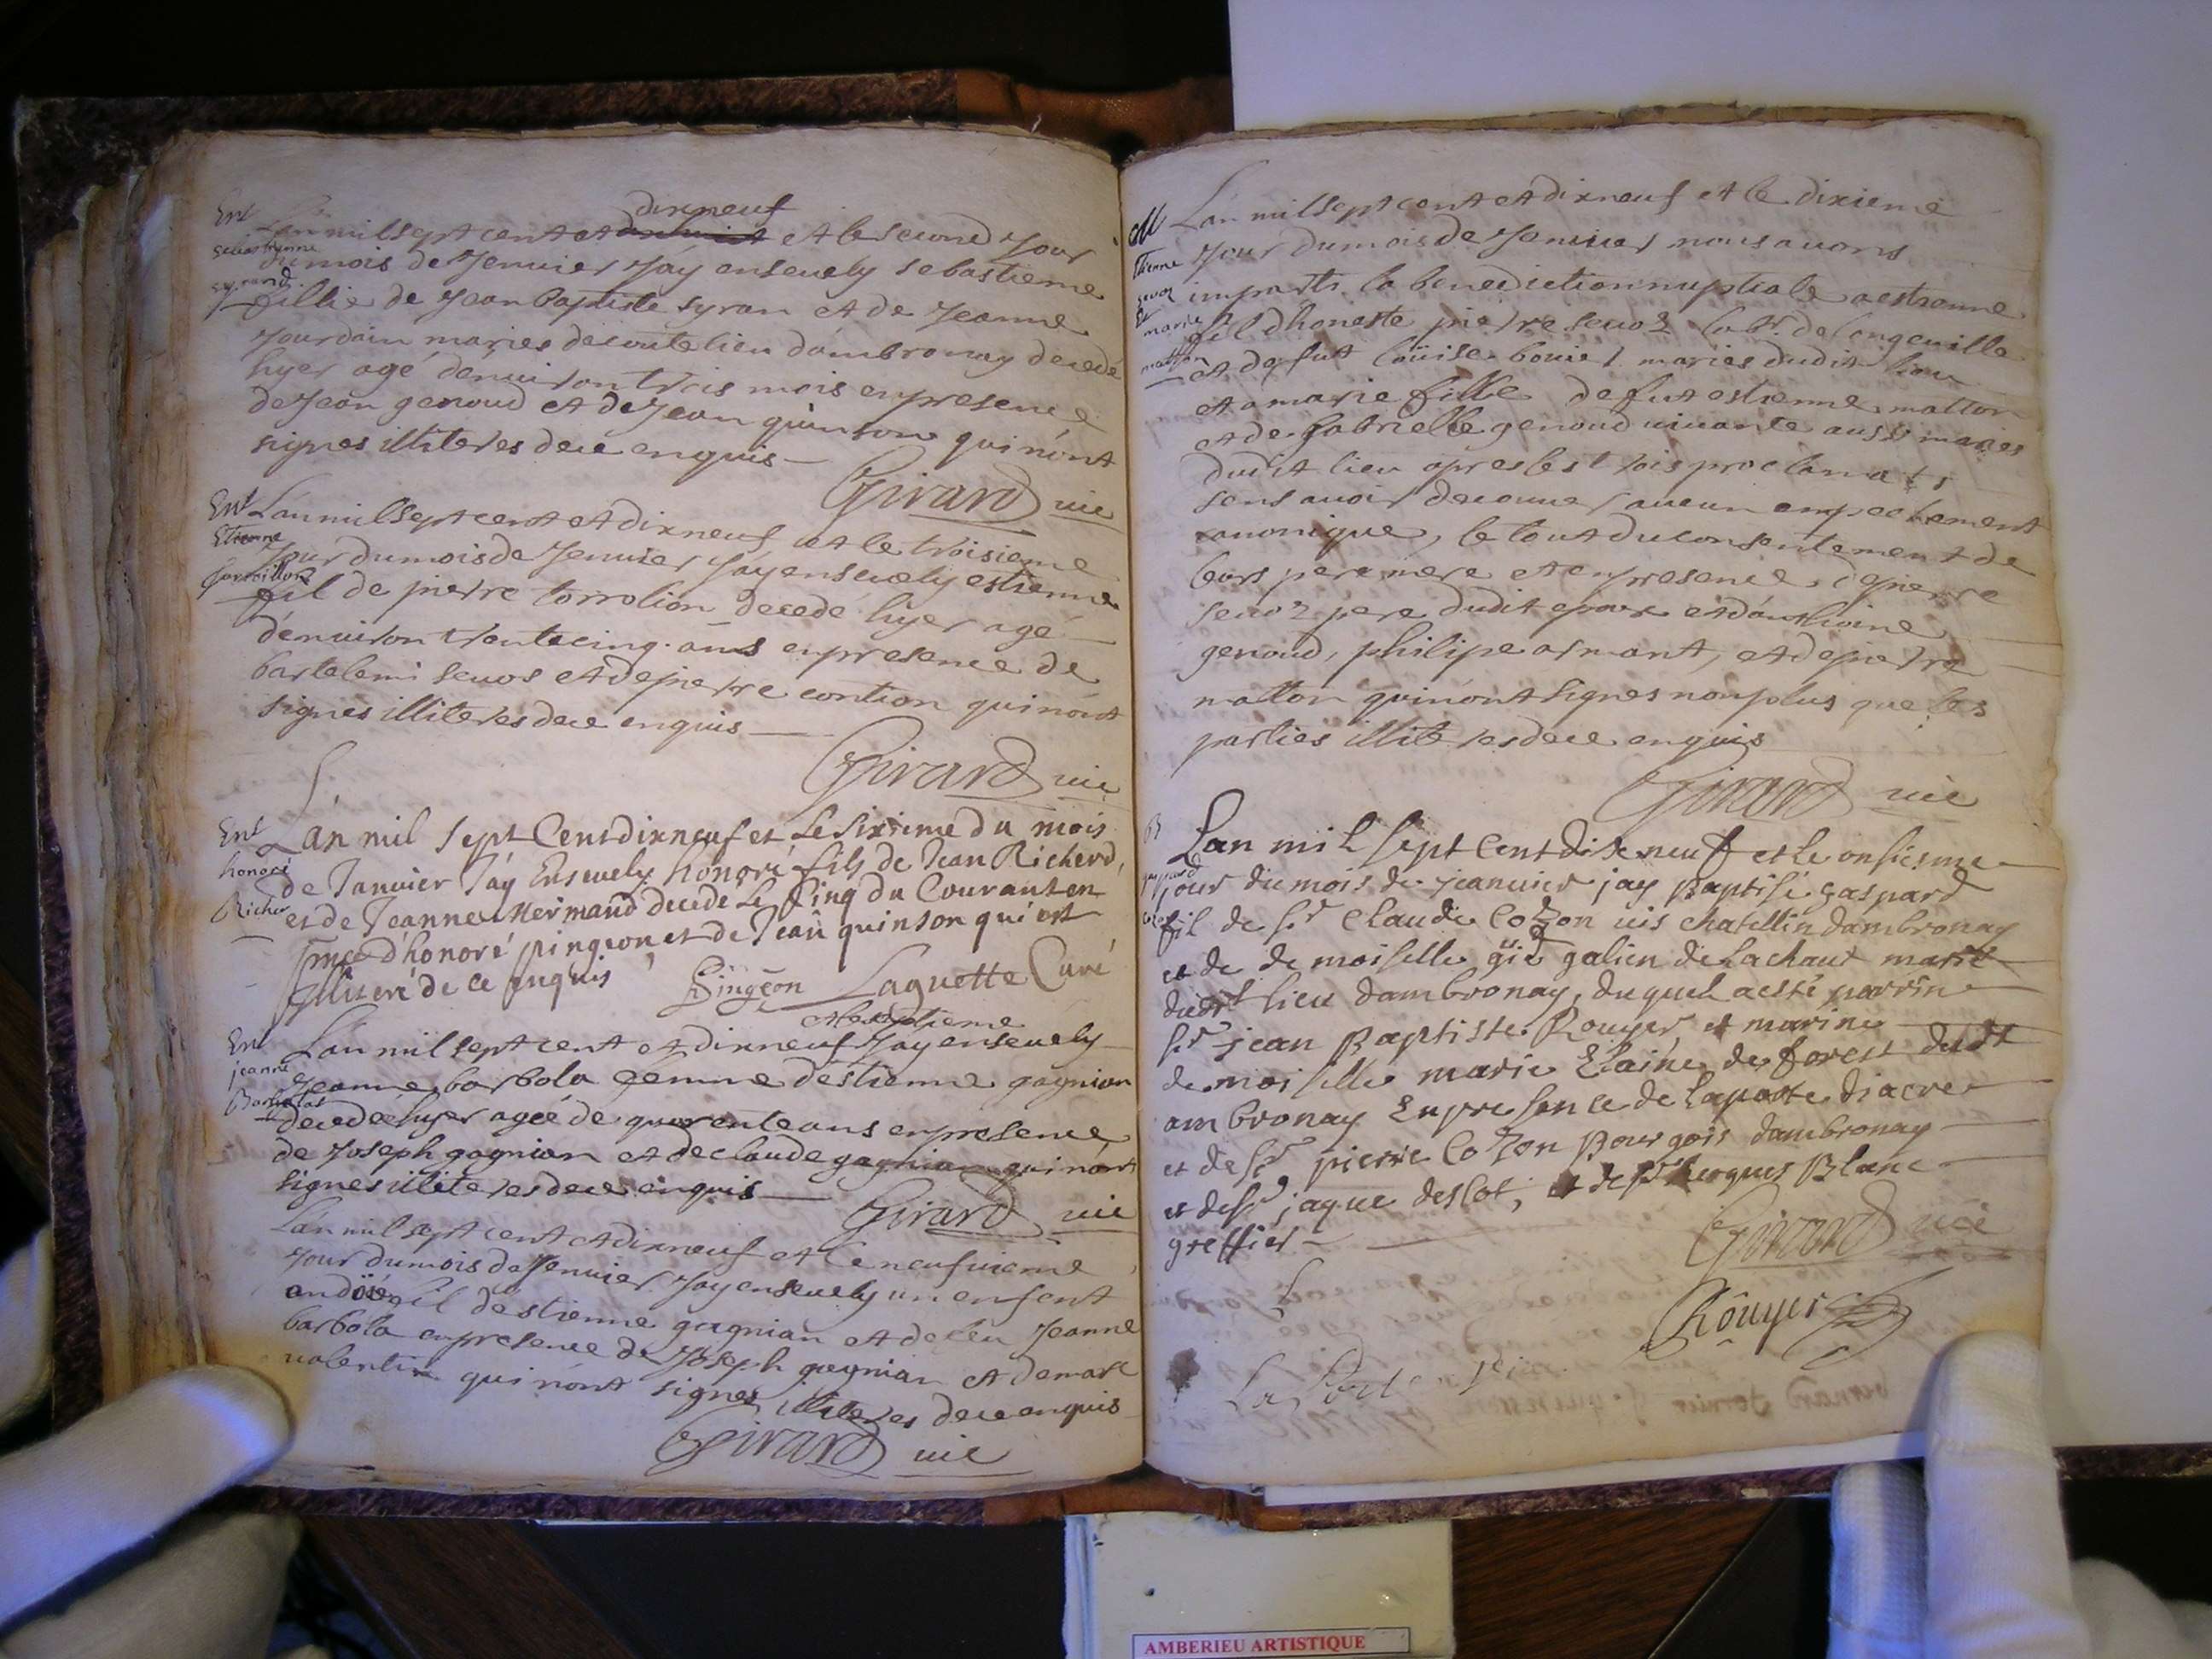 Ent
sebastienne
syrand
dixneuf
Lan mil sept cent et dixhuict et le second Jour
du mois de Jenvier Jáy ensevely sebastienne
fillie de Jean baptiste syran et de Jeanne
Jourdain maries de ce lieu dámbronay decedé
hyer agé dénviron trois mois en presence
de Jean genoud et de Jean quinson qui nónt
signes illiteres de ce enquis
Girard vic
Ent
Etienne
Lán mil sept cent et dixneuf et le troisieme
Jour du mois de Jenvier Jáy ensevely estienne
fil de pierre corrolion decedé hyer agé
dénviron trente cinq ans en presence de
bartelemi sevos et de pierre contion qui nónt
signes illiteres de ce enquis
Girard vic
Ent
honoré
Richer
Lán mil sept Cent dixneuf et Le sixieme du mois
de Janvier Jáy Ensevely hónoré fils de Jean Richerd
et de Jeanne Mermand decedé Le Cinq du Courant en
pnce d'honoré pingeon et de Jean quinson qui est
Illiteré de ce Enquis Pingeon Laguette Curé
Ent
jeanne
Barbolat
et le septieme
Lán mil sept cent et dixneuf Jay ensevely
Jeanne barbola femme déstienne gagnion
decedeé hyer ageé de quarente ans en presence
de Joseph gagnion et de claude gagnian qui nónt
signes illiteres de ce enquis
Girard vic
Lán mil sept cent et dixneuf et le neufvieme
Jour du mois de Jenvier Jay ensevely un enfent
ondoié fil déstienne gagnian et de feu Jeanne
barbola en presence de Joseph gagnian et de marc
valentin qui nónt signes illiteres de ce enquis
Girard vic
M
Etienne
sevoz
Et
marie
matton
Lán mil sept cent et dixneuf et le dixieme
Jour du mois de Jenvier nous avons
imparti la benediction nuptiale a estienne
fil dhoneste pierre sevoz labr. de longeville
et de fut loüise bouier maries dudit lieu
et a marie fille de fut estienne matton
et de gabrielle genoud vivante aussi maries
dudit lieu apres les trois proclamats
sens avoir decouver aucun empechement
canonique, le tout du consentement de
leurs pere mere et en presence de pierre
sevoz pere dudit epoux et dánthoine
genoud, philipe armant, et de pierre
matton qui nónt signes non plus que les
parties illiteres de ce enquis
Girard vic
B
gaspard
Lan mil sept Cent dixe neuf et le onsiesme
jour du mois de jeanvier jay Baptisé gaspard
fil de sr Claude Cozon vis chatellin dambronay
et de demoiselle galien de Lachaut marié
dudit lieu dambronay, duquel a esté parrin
sr jean Baptiste Rouyer et marine
demoiselle marie Elaine de forest dudt
ambronay En presence de Laporte diacre
et de sr pierre Cozon Bourgois dambronay
et de sr jaque deslot, et de sr Jacques Blanc
greffier
Girard vic
Rôuyer
La Porte
AMBERIEU ARTISTIQUE